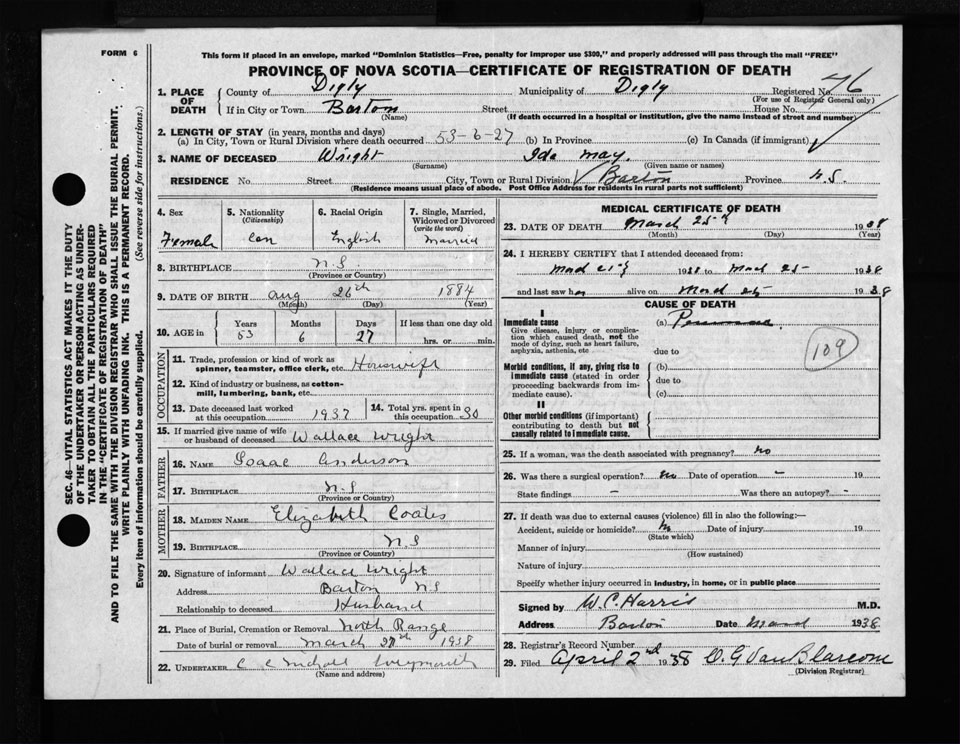 FORM 6
This form if placed in an envelope, marked "Dominion Statistics—Free, penalty for improper use $300," and properly addressed will pass through the mail "FREE"
PROVINCE OF NOVA SCOTIA—CERTIFICATE OF REGISTRATION OF DEATH
SEC. 46—VITAL STATISTICS ACT MAKES IT THE DUTY
OF THE UNDERTAKER OR PERSON ACTING AS UNDER-
TAKER TO OBTAIN ALL THE PARTICULARS REQUIRED
IN THE "CERTIFICATE OF REGISTRATION OF DEATH"
AND TO FILE THE SAME WITH THE DIVISION REGISTRAR WHO SHALL ISSUE THE BURIAL PERMIT.
WRITE PLAINLY WITH UNFADING INK. THIS IS A PERMANENT RECORD.
Every item of information should be carefully supplied. (See reverse side for instructions.)
1. PLACE OF DEATH County of Digby Municipality of Digby Registered No. 76
(For use of Registrar General only)
If in City or Town Barton Street House No.
(Name) (If death occurred in a hospital or institution, give the name instead of street and number)
2. LENGTH OF STAY (in years, months and days)
(a) In City, Town or Rural Division where death occurred 53-6-27 (b) In Province (c) In Canada (if immigrant)
3. NAME OF DECEASED Wright Ida May.
(Surname) (Given name or names)
RESIDENCE No. Street City, Town or Rural Division Barton Province N.S.
(Residence means usual place of abode. Post Office Address for residents in rural parts not sufficient)
4. Sex Female
5. Nationality (Citizenship) Can
6. Racial Origin English
7. Single, Married, Widowed or Divorced (write the word) Married
8. BIRTHPLACE N.S.
(Province or Country)
9. DATE OF BIRTH Aug 26th 1884
(Month) (Day) (Year)
10. AGE in Years Months Days If less than one day old
53 6 27 hrs. or min.
OCCUPATION
11. Trade, profession or kind of work as
spinner, teamster, office clerk, etc. Housewife
12. Kind of industry or business, as cotton-
mill, lumbering, bank, etc.
13. Date deceased last worked
at this occupation 1937
14. Total yrs. spent in
this occupation 30
15. If married give name of wife
or husband of deceased Wallace Wright
FATHER
16. NAME Isaac Anderson
17. BIRTHPLACE N.S
(Province or Country)
MOTHER
18. MAIDEN NAME Elizabeth Coates
19. BIRTHPLACE N.S
(Province or Country)
20. Signature of informant Wallace Wright
Address Barton N.S
Relationship to deceased Husband
21. Place of Burial, Cremation or Removal North Range
Date of burial or removal March 27th 1938
22. UNDERTAKER Weymouth
(Name and address)
MEDICAL CERTIFICATE OF DEATH
23. DATE OF DEATH March 25th 1938
(Month) (Day) (Year)
24. I HEREBY CERTIFY that I attended deceased from:
March 21st 1938 to March 25 1938
and last saw her alive on March 25 1938
CAUSE OF DEATH
I
Immediate cause (a) Pneumonia
Give disease, injury or complica-
tion which caused death, not the
mode of dying, such as heart failure,
asphyxia, asthenia, etc due to
109
Morbid conditions, if any, giving rise to
immediate cause (stated in order
proceeding backwards from im-
mediate cause).
(b)
due to
(c)
II
Other morbid conditions (if important)
contributing to death but not
causally related to immediate cause.
25. If a woman, was the death associated with pregnancy? no
26. Was there a surgical operation? No Date of operation – 19
State findings – Was there an autopsy? –
27. If death was due to external causes (violence) fill in also the following:—
Accident, suicide or homicide? No Date of injury 19
(State which)
Manner of injury
(How sustained)
Nature of injury
Specify whether injury occurred in industry, in home, or in public place
Signed by W.C. Harris M.D.
Address Barton Date March 1938
28. Registrar's Record Number
29. Filed April 2nd 1938 D. G. Van Blarcom
(Division Registrar)